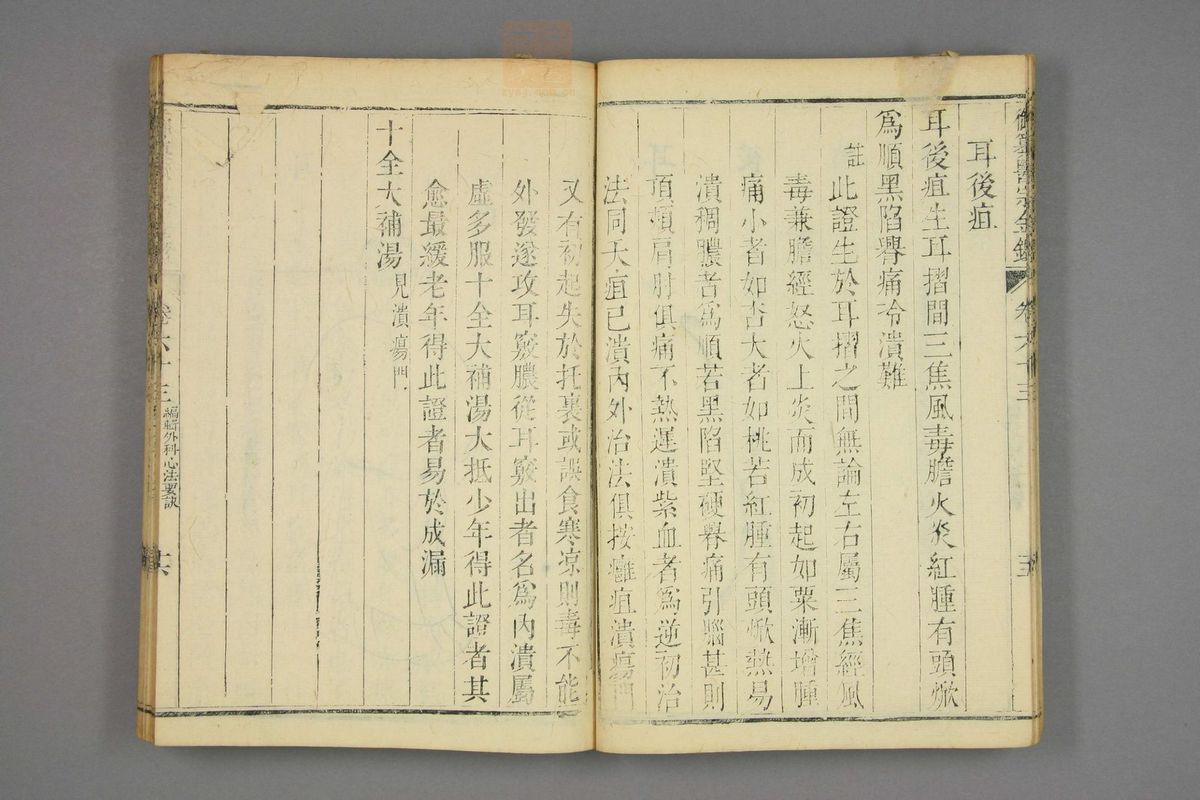 御纂醫宗金鑑 卷六十三 五
耳後疽
耳後疽生耳摺間三焦風毒膽火炎紅腫有頭焮
為順黑陷臖痛冷潰難
註此證生於耳摺之間無論左右屬三焦經風
毒兼膽經怒火上炎而成初起如粟漸增腫
痛小者如杏大者如桃若紅腫有頭焮熱易
潰稠膿者為順若黑陷堅硬臖痛引腦甚則
項頰肩肘俱痛不熱遲潰紫血者為逆初治
法同夭疽已潰內外治法俱按癰疽潰瘍門
又有初起失於托裏或誤食寒凉則毒不能
外發遂攻耳竅膿從耳竅出者名為內潰屬
虛多服十全大補湯大抵少年得此證者其
愈最緩老年得此證者易於成漏
十全大補湯見潰瘍門
卷六十三 編輯外科心法要訣 六